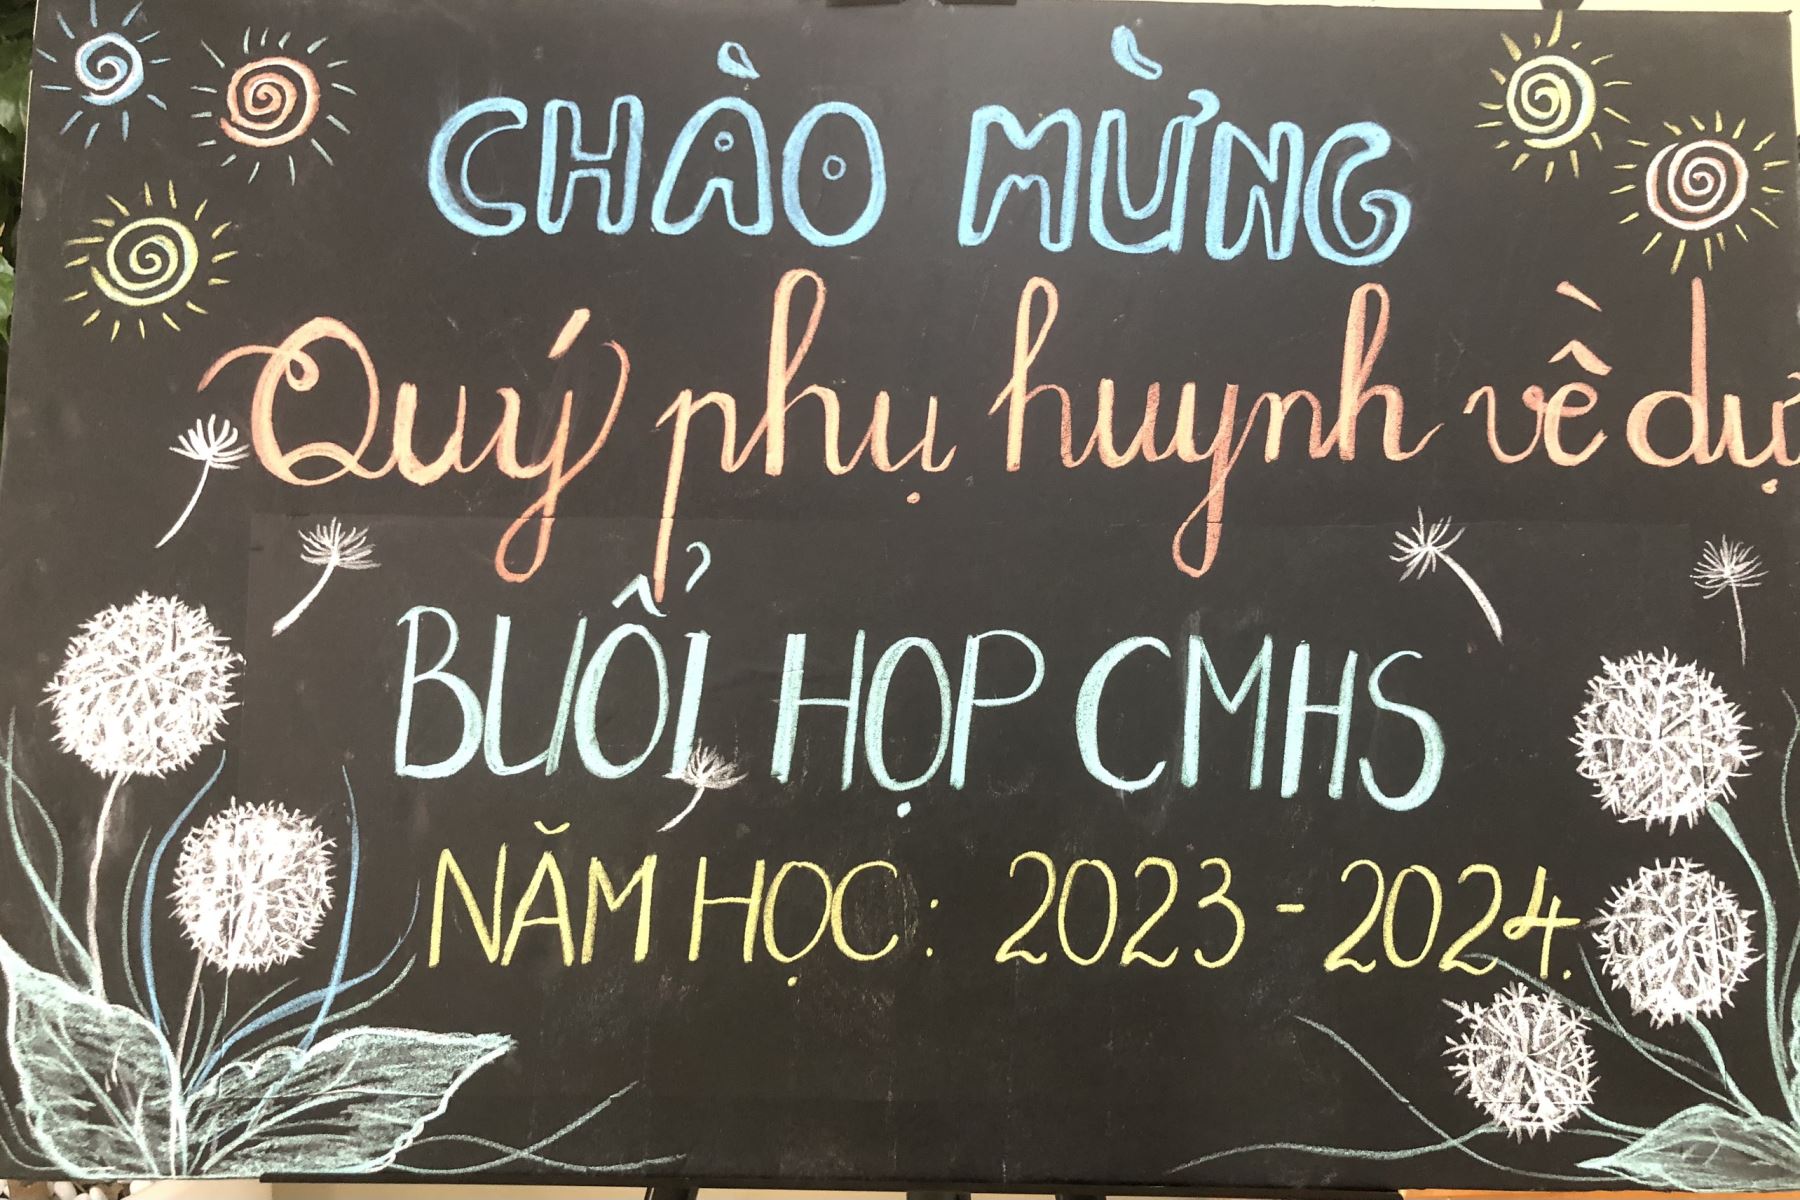 CHÀO MỪNG
Quý phụ huynh về dự
BUỔI HỌP CMHS
NĂM HỌC: 2023 - 2024.